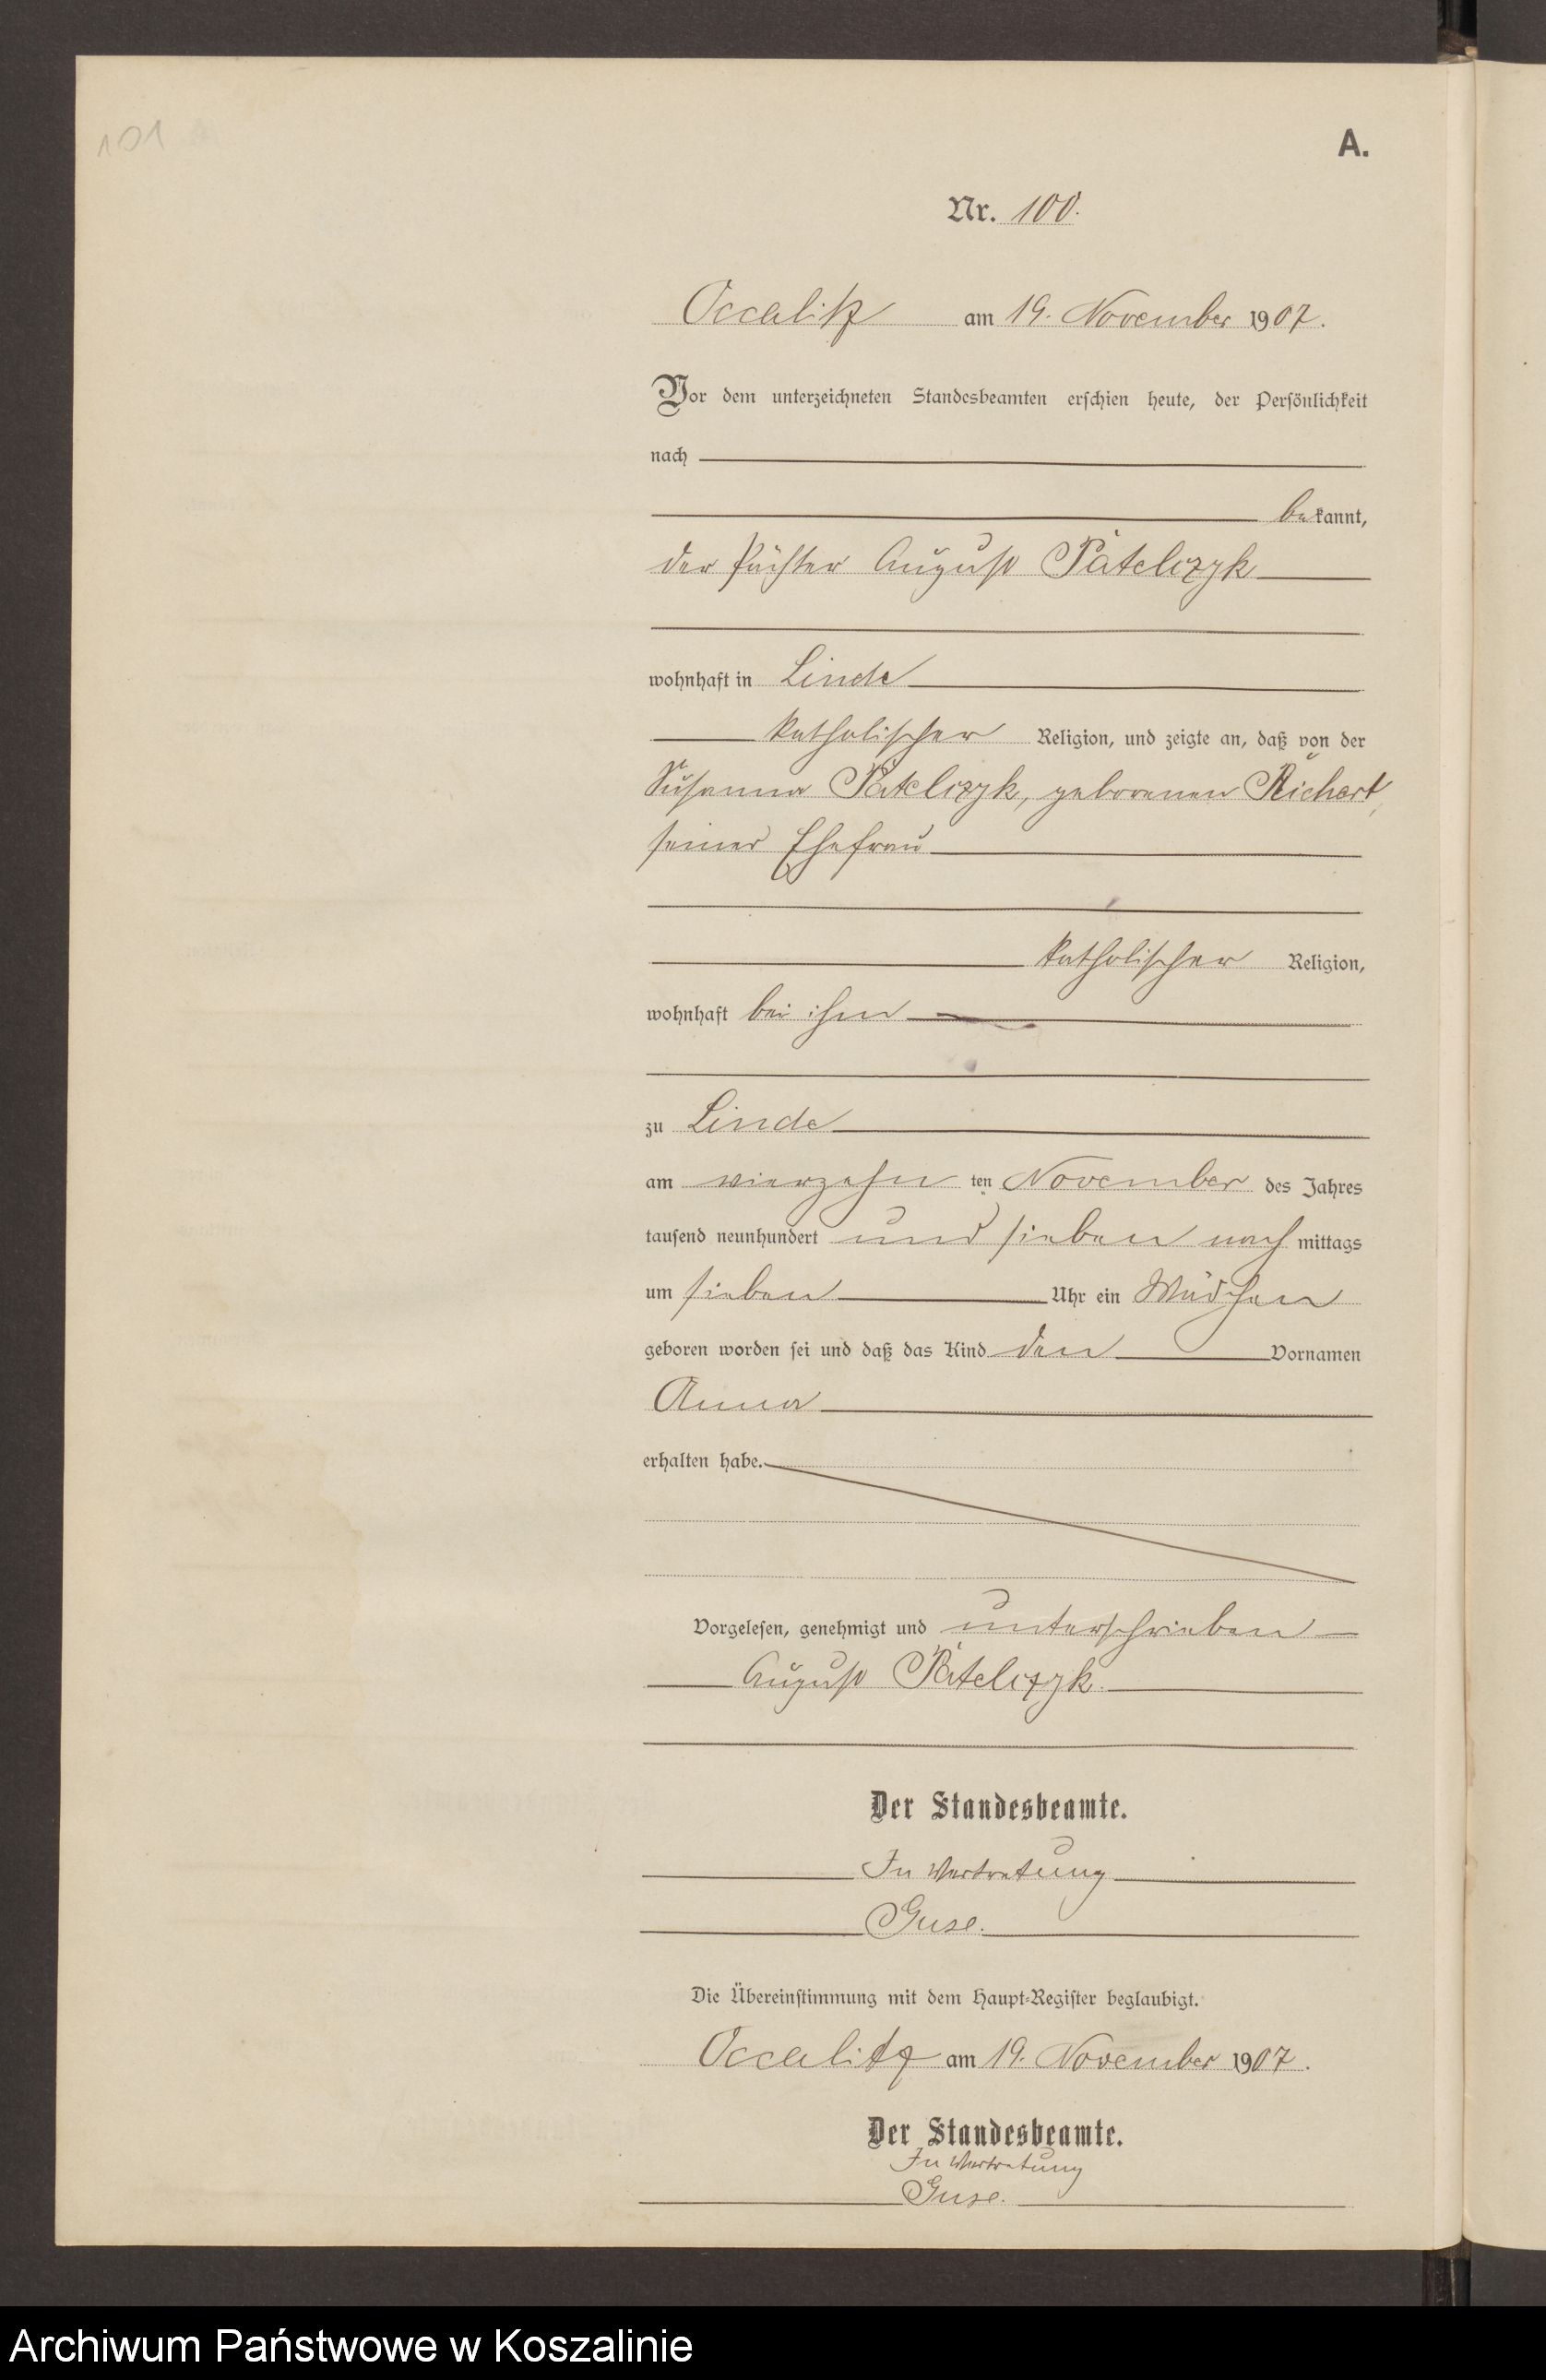 101
A.
Nr. 100.
Occalitz am 19. November 1907.
Vor dem unterzeichneten Standesbeamten erschien heute, der Persönlichkeit
nach
bekannt,
der Pächter August Patelczyk
wohnhaft in Linde
katholischer Religion, und zeigte an, daß von der
Susanna Patelczyk, geborenen Richert,
seiner Ehefrau
katholischer Religion,
wohnhaft bei ihm
zu Linde
am vierzehn ten November des Jahres
tausend neunhundert und sieben nach mittags
um sieben Uhr ein Mädchen
geboren worden sei und daß das Kind den Vornamen
Anna
erhalten habe.
Vorgelesen, genehmigt und unterschrieben
August Patelczyk.
Der Standesbeamte.
In Vertretung
Guse.
Die Übereinstimmung mit dem Haupt-Register beglaubigt.
Occalitz am 19. November 1907.
Der Standesbeamte.
In Vertretung
Guse.
Archiwum Państwowe w Koszalinie